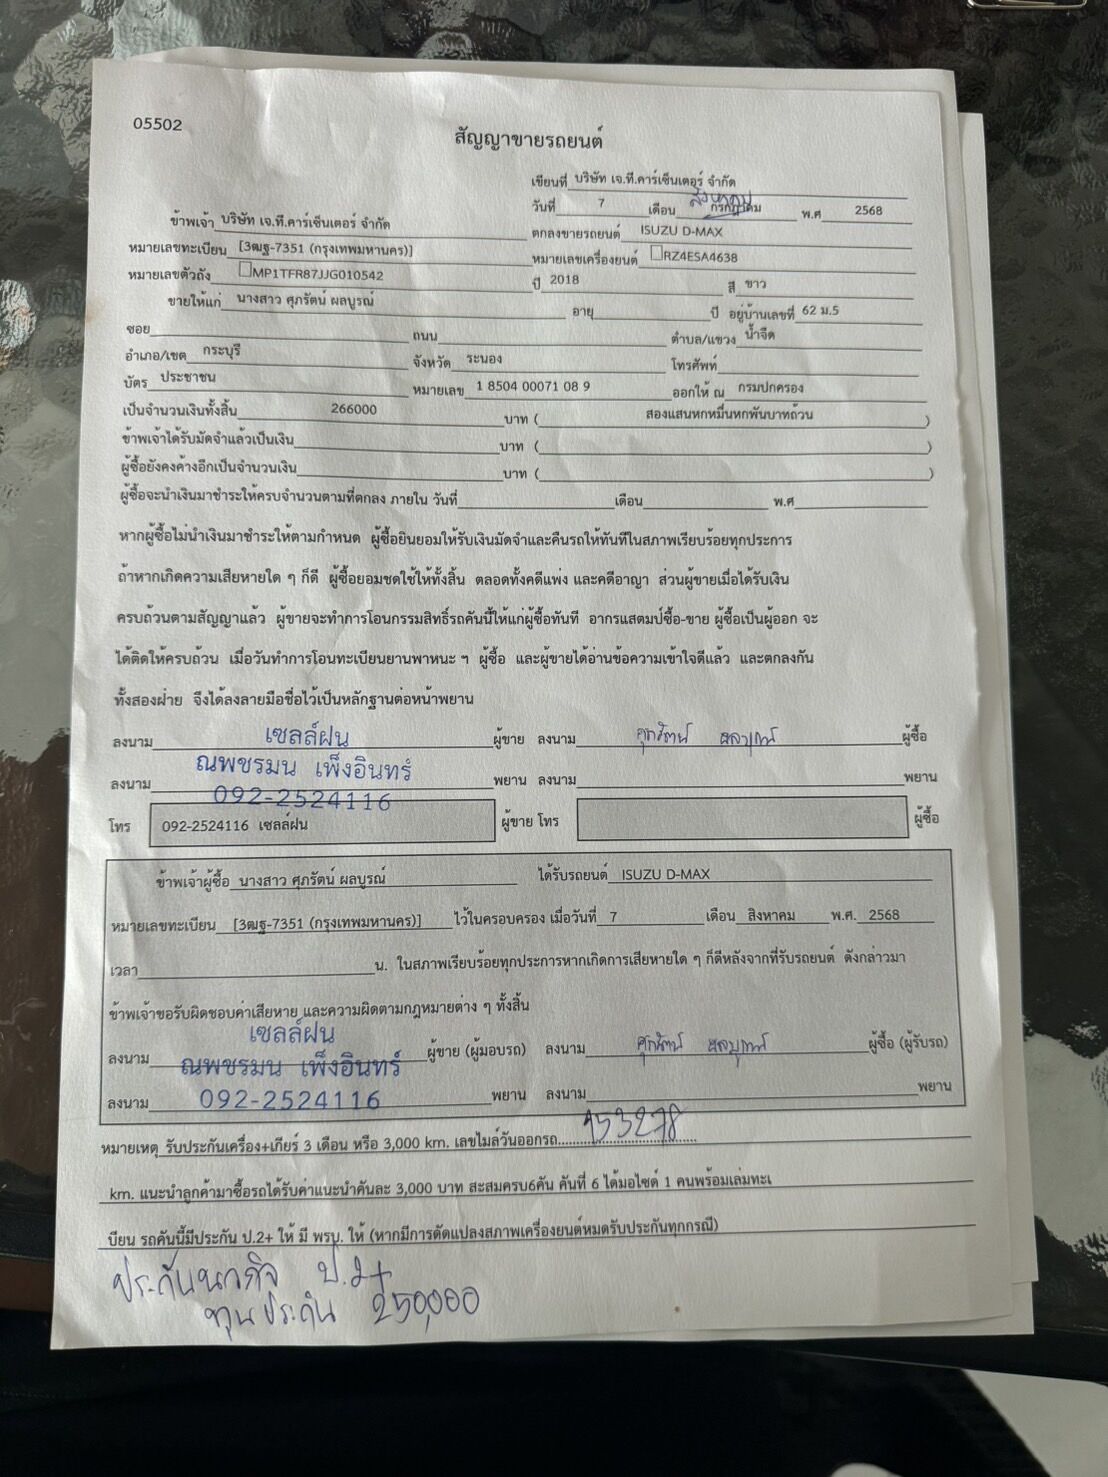 05502
สัญญาขายรถยนต์
เขียนที่ บริษัท เจ.ที.คาร์เซ็นเตอร์ จำกัด
วันที่ 7 เดือน กรกฎาคม สิงหาคม พ.ศ 2568
ข้าพเจ้า บริษัท เจ.ที.คาร์เซ็นเตอร์ จำกัด ตกลงขายรถยนต์ ISUZU D-MAX
หมายเลขทะเบียน [3ฒฐ-7351 (กรุงเทพมหานคร)] หมายเลขเครื่องยนต์ RZ4ESA4638
หมายเลขตัวถัง MP1TFR87JJG010542 ปี 2018 สี ขาว
ขายให้แก่ นางสาว ศุภรัตน์ ผลบูรณ์ อายุ ปี อยู่บ้านเลขที่ 62 ม.5
ซอย ถนน ตำบล/แขวง น้ำจืด
อำเภอ/เขต กระบุรี จังหวัด ระนอง โทรศัพท์
บัตร ประชาชน หมายเลข 1 8504 00071 08 9 ออกให้ ณ กรมปกครอง
เป็นจำนวนเงินทั้งสิ้น 266000 บาท ( สองแสนหกหมื่นหกพันบาทถ้วน )
ข้าพเจ้าได้รับมัดจำแล้วเป็นเงิน บาท ( )
ผู้ซื้อยังคงค้างอีกเป็นจำนวนเงิน บาท ( )
ผู้ซื้อจะนำเงินมาชำระให้ครบจำนวนตามที่ตกลง ภายใน วันที่ เดือน พ.ศ
หากผู้ซื้อไม่นำเงินมาชำระให้ตามกำหนด ผู้ซื้อยินยอมให้รับเงินมัดจำและคืนรถให้ทันทีในสภาพเรียบร้อยทุกประการ
ถ้าหากเกิดความเสียหายใด ๆ ก็ดี ผู้ซื้อยอมชดใช้ให้ทั้งสิ้น ตลอดทั้งคดีแพ่ง และคดีอาญา ส่วนผู้ขายเมื่อได้รับเงิน
ครบถ้วนตามสัญญาแล้ว ผู้ขายจะทำการโอนกรรมสิทธิ์รถคันนี้ให้แก่ผู้ซื้อทันที อากรแสตมป์ซื้อ-ขาย ผู้ซื้อเป็นผู้ออก จะ
ได้ติดให้ครบถ้วน เมื่อวันทำการโอนทะเบียนยานพาหนะ ฯ ผู้ซื้อ และผู้ขายได้อ่านข้อความเข้าใจดีแล้ว และตกลงกัน
ทั้งสองฝ่าย จึงได้ลงลายมือชื่อไว้เป็นหลักฐานต่อหน้าพยาน
ลงนาม เซลล์ฝน ผู้ขาย ลงนาม ศุภรัตน์ ผลบูรณ์ ผู้ซื้อ
ลงนาม ณพชรมน เพ็งอินทร์ พยาน ลงนาม พยาน
092-2524116
โทร 092-2524116 เซลล์ฝน ผู้ขาย โทร ผู้ซื้อ
ข้าพเจ้าผู้ซื้อ นางสาว ศุภรัตน์ ผลบูรณ์ ได้รับรถยนต์ ISUZU D-MAX
หมายเลขทะเบียน [3ฒฐ-7351 (กรุงเทพมหานคร)] ไว้ในครอบครอง เมื่อวันที่ 7 เดือน สิงหาคม พ.ศ. 2568
เวลา น. ในสภาพเรียบร้อยทุกประการหากเกิดการเสียหายใด ๆ ก็ดีหลังจากที่รับรถยนต์ ดังกล่าวมา
ข้าพเจ้าขอรับผิดชอบค่าเสียหาย และความผิดตามกฎหมายต่าง ๆ ทั้งสิ้น
เซลล์ฝน
ลงนาม ณพชรมน เพ็งอินทร์ ผู้ขาย (ผู้มอบรถ) ลงนาม ศุภรัตน์ ผลบูรณ์ ผู้ซื้อ (ผู้รับรถ)
ลงนาม 092-2524116 พยาน ลงนาม พยาน
หมายเหตุ รับประกันเครื่อง+เกียร์ 3 เดือน หรือ 3,000 km. เลขไมล์วันออกรถ 153278
km. แนะนำลูกค้ามาซื้อรถได้รับค่าแนะนำคันละ 3,000 บาท สะสมครบ6คัน คันที่ 6 ได้มอไซด์ 1 คนพร้อมเล่มทะเ
บียน รถคันนี้มีประกัน ป.2+ ให้ มี พรบ. ให้ (หากมีการดัดแปลงสภาพเครื่องยนต์หมดรับประกันทุกกรณี)
ประกันนวกิจ ป.2+
ทุนประกัน 250,000